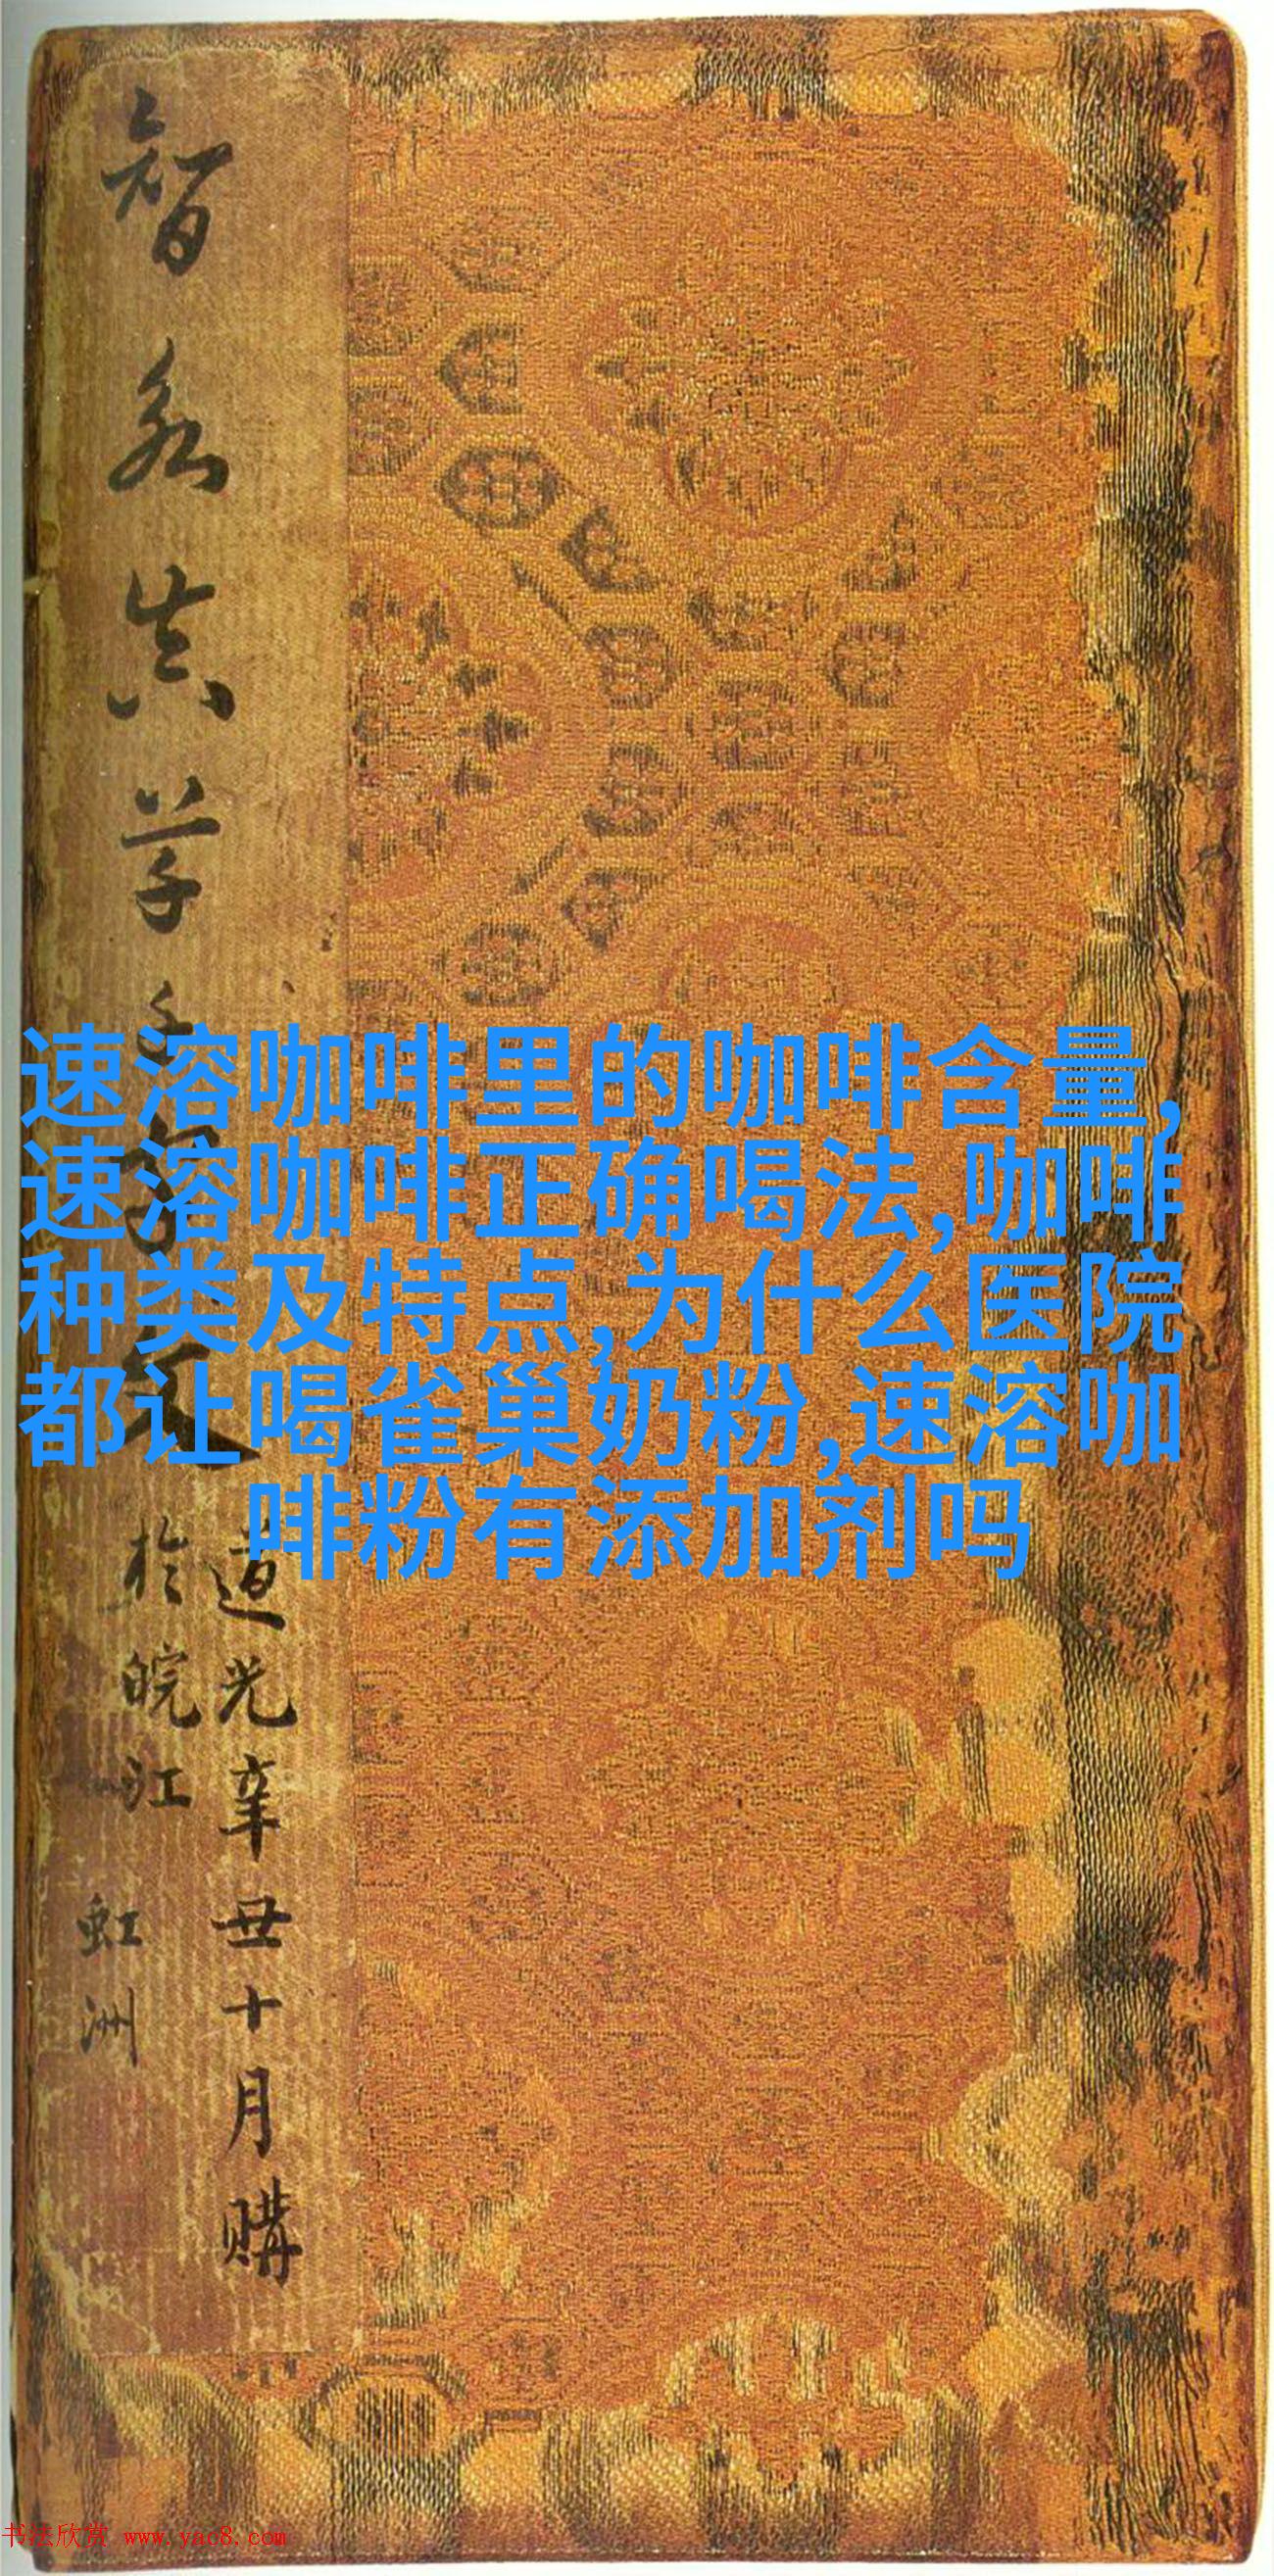 智永真草千
速溶咖啡里的咖啡含量,
速溶咖啡正确喝法,咖啡
种类及特点,为什么医院
都让喝雀巢奶粉,速溶咖
啡粉有添加剂吗
道光辛丑十月購
於皖江
虹洲
书法欣赏 www.yac8.com